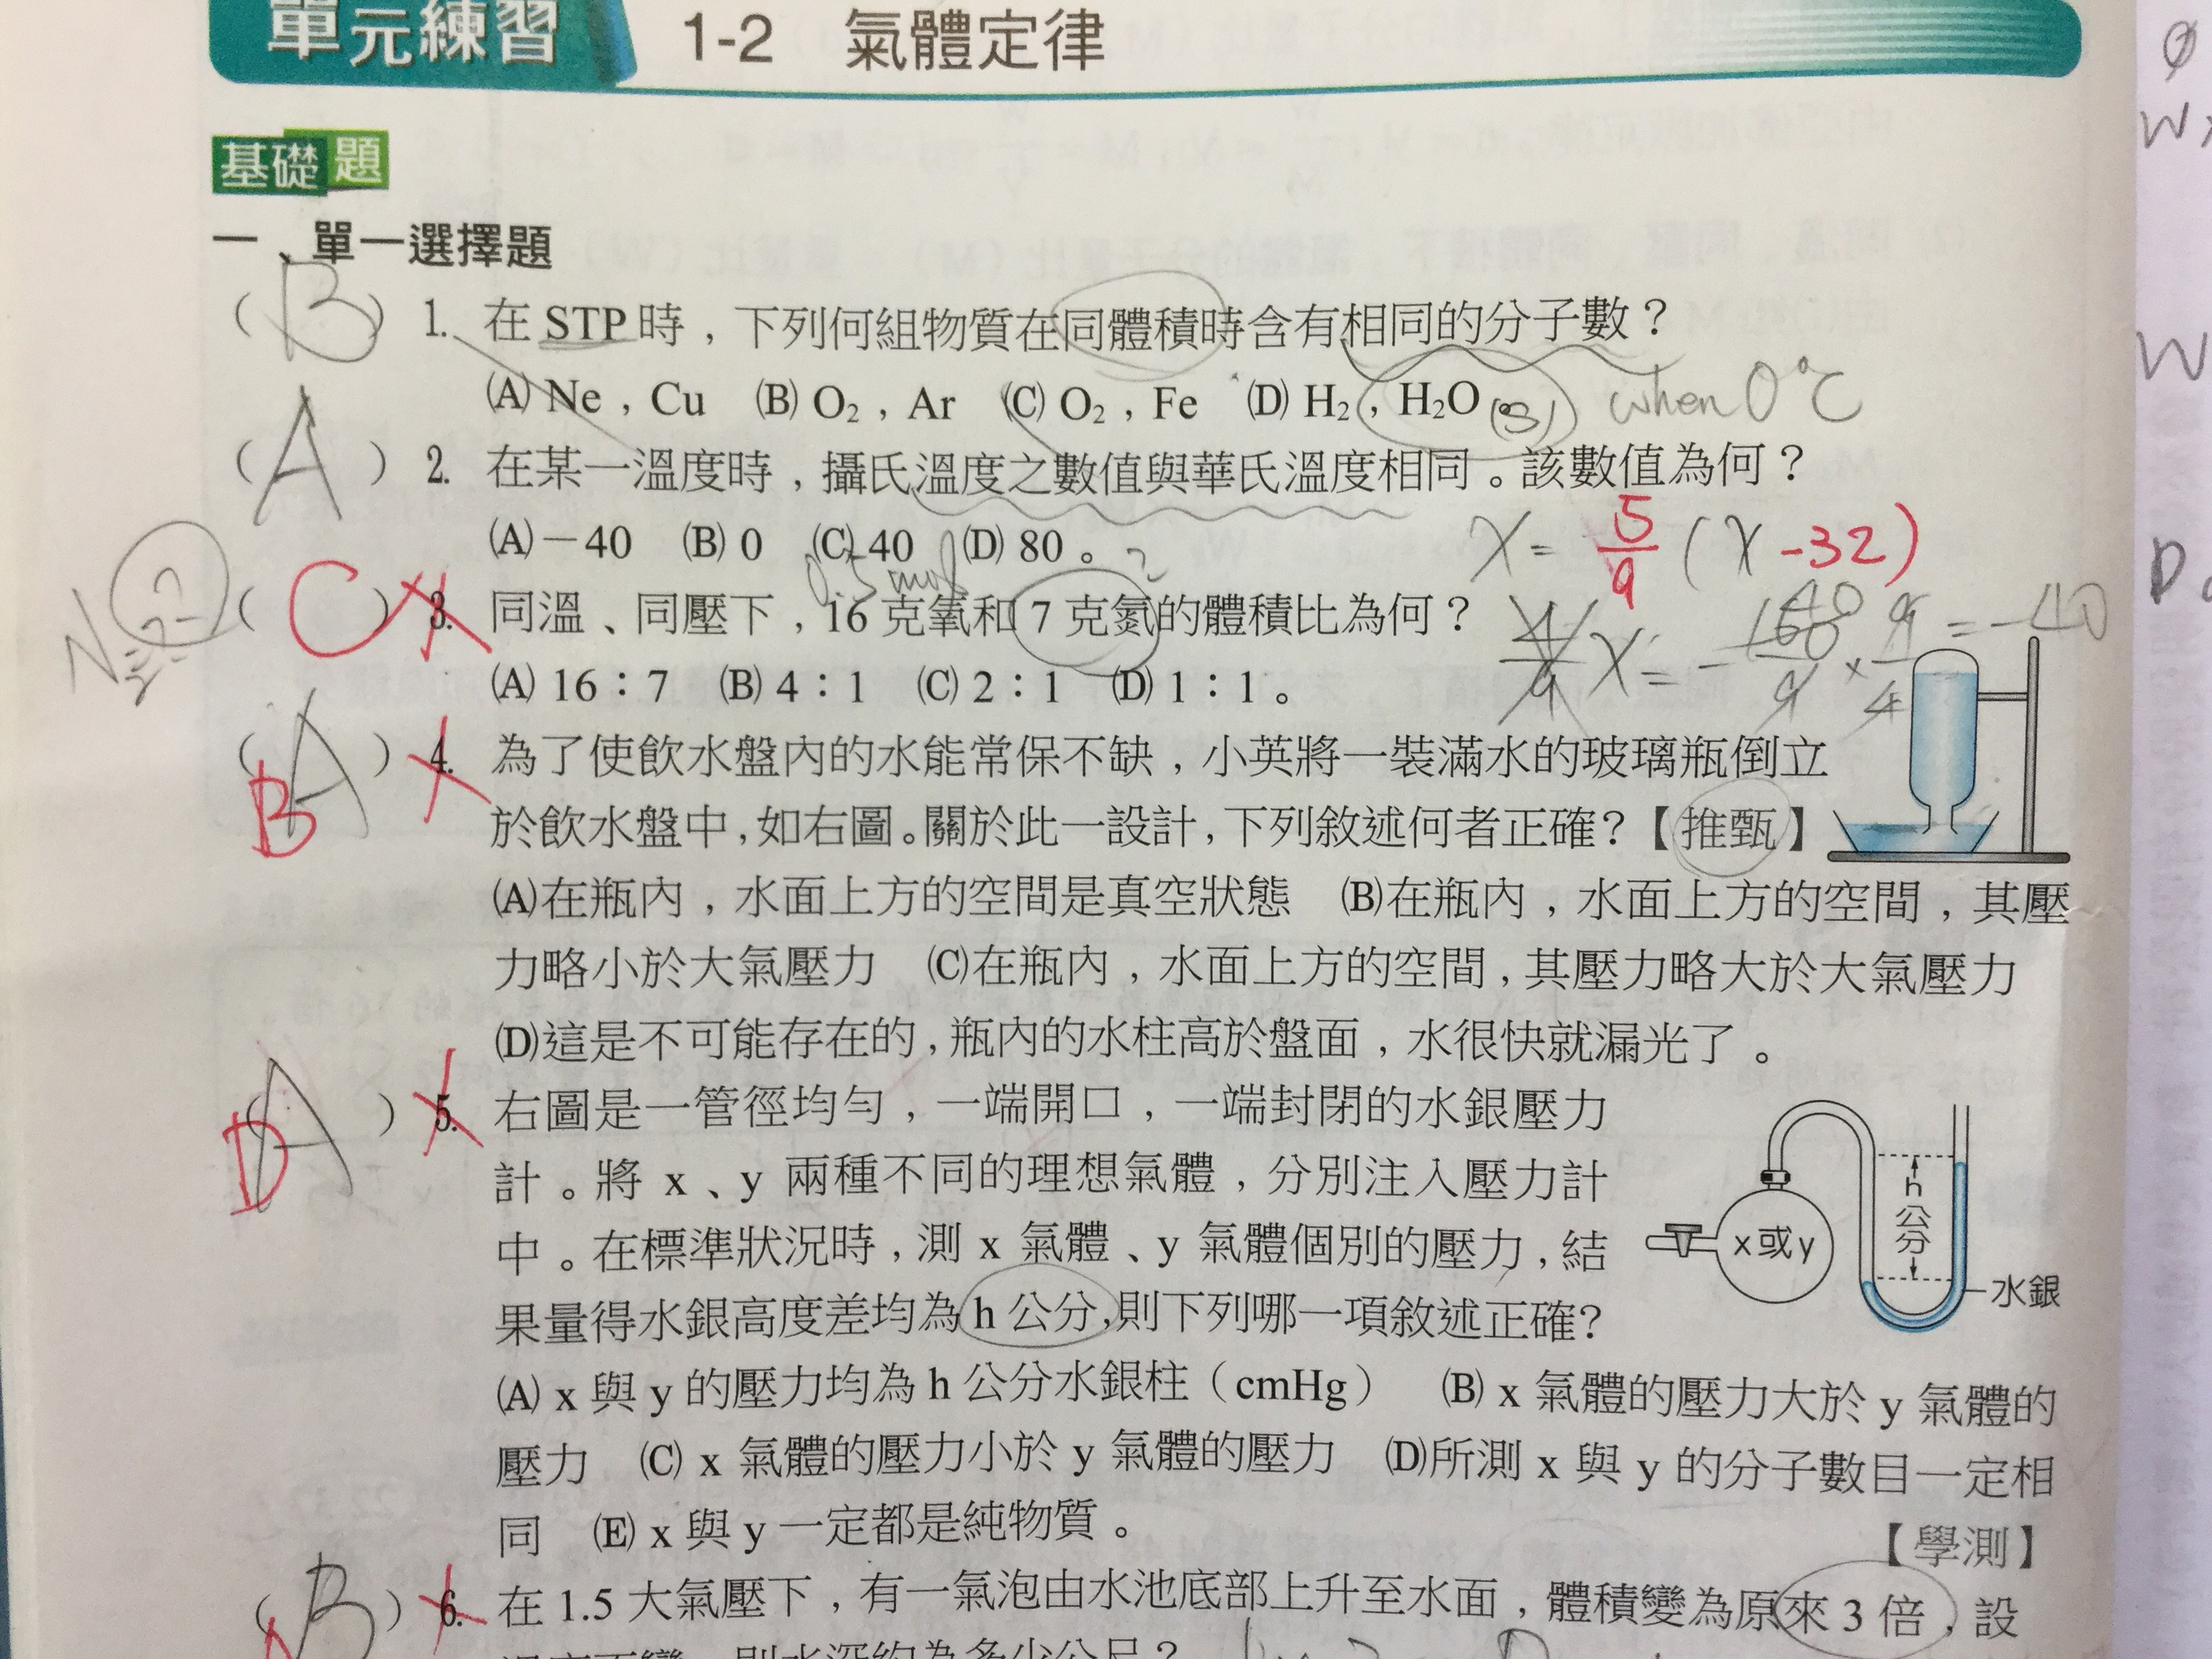 單元練習 1-2 氣體定律
基礎題
一、單一選擇題
( B ) 1. 在 STP 時，下列何組物質在同體積時含有相同的分子數？
(A) Ne，Cu (B) O₂，Ar (C) O₂，Fe (D) H₂，H₂O。(s) when 0°C
( A ) 2. 在某一溫度時，攝氏溫度之數值與華氏溫度相同。該數值為何？
(A)－40 (B) 0 (C) 40 (D) 80。
X = 5/9 (X -32)
0.5 mol
( C ) 3. 同溫、同壓下，16 克氧和 7 克氮的體積比為何？
= -40
(A) 16：7 (B) 4：1 (C) 2：1 (D) 1：1。
( A ) B 4. 為了使飲水盤內的水能常保不缺，小英將一裝滿水的玻璃瓶倒立
於飲水盤中，如右圖。關於此一設計，下列敘述何者正確？【推甄】
(A)在瓶內，水面上方的空間是真空狀態 (B)在瓶內，水面上方的空間，其壓
力略小於大氣壓力 (C)在瓶內，水面上方的空間，其壓力略大於大氣壓力
(D)這是不可能存在的，瓶內的水柱高於盤面，水很快就漏光了。
( A ) D 5. 右圖是一管徑均勻，一端開口，一端封閉的水銀壓力
計。將 x、y 兩種不同的理想氣體，分別注入壓力計
中。在標準狀況時，測 x 氣體、y 氣體個別的壓力，結
果量得水銀高度差均為 h 公分，則下列哪一項敘述正確？
h公分
x或y
水銀
(A) x 與 y 的壓力均為 h 公分水銀柱（cmHg） (B) x 氣體的壓力大於 y 氣體的
壓力 (C) x 氣體的壓力小於 y 氣體的壓力 (D)所測 x 與 y 的分子數目一定相
同 (E) x 與 y 一定都是純物質。
【學測】
( B ) 6. 在 1.5 大氣壓下，有一氣泡由水池底部上升至水面，體積變為原來 3 倍，設